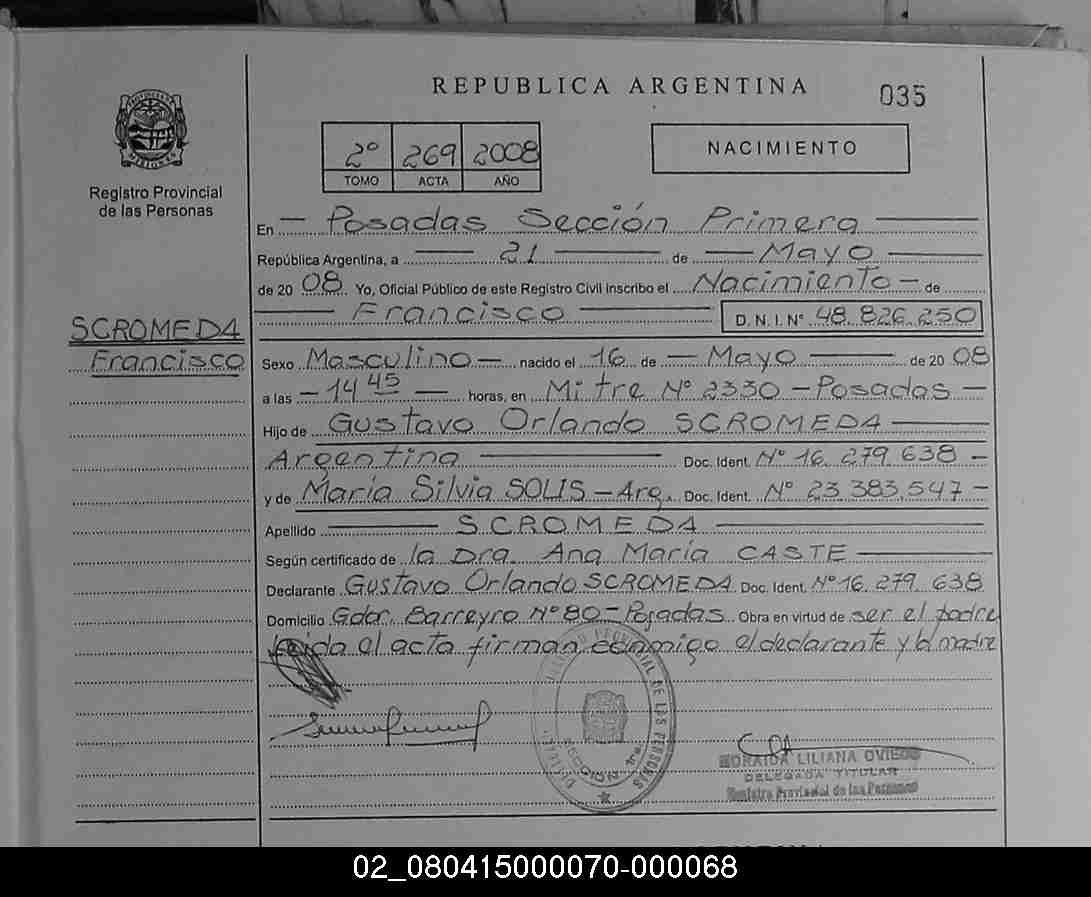 REPUBLICA ARGENTINA
035
PROVINCIA DE MISIONES
Registro Provincial
de las Personas
2° 269 2008
TOMO ACTA AÑO
NACIMIENTO
En — Posadas Sección Primera —
República Argentina, a — 21 — de — Mayo
de 20 08 Yo, Oficial Público de este Registro Civil inscribo el Nacimiento — de
— Francisco — D.N.I.N° 48.826.250
SCROMEDA
Francisco
Sexo Masculino — nacido el 16 de — Mayo — de 20 08
a las — 14 45 — horas, en Mitre N° 2330 — Posadas —
Hijo de Gustavo Orlando SCROMEDA —
Argentina — Doc. Ident. N° 16.279.638 —
y de María Silvia SOLIS — Arg. Doc. Ident. N° 23.383.547 —
Apellido — SCROMEDA —
Según certificado de la Dra. Ana María CASTE —
Declarante Gustavo Orlando SCROMEDA Doc. Ident. N° 16.279.638
Domicilio Gdor. Barreyro N° 80 — Posadas. Obra en virtud de ser el padre
leida el acta firman conmigo el declarante y la madre
PROVINCIAL DE LAS PERSONAS
SECCION 1ra.
LILIANA OVIEDO
DELEGADA TITULAR
Registro Provincial de las Personas
02_080415000070-000068